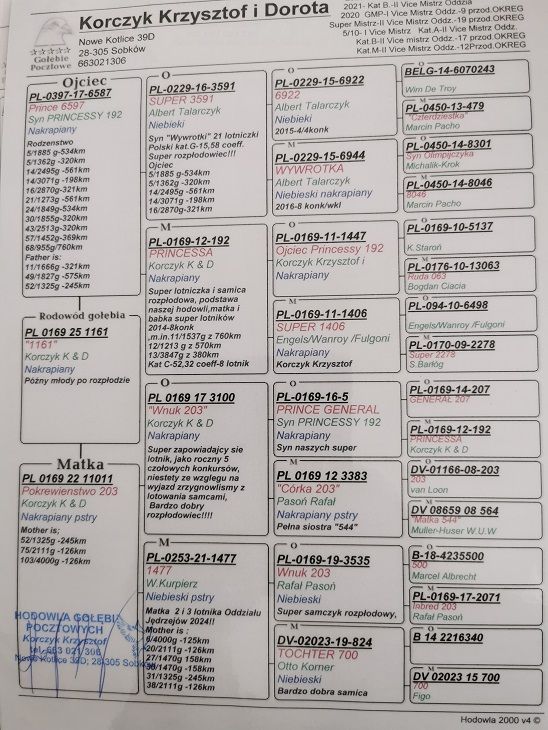 Korczyk Krzysztof i Dorota
Nowe Kotlice 39D
28-305 Sobków
663021306
Gołębie
Pocztowe
2021- Kat B.-II Vice Mistrz Oddzia
2020 GMP-I Vice Mistrz Oddz.-9 przod.OKREG
Super Mistrz-II Vice Mistrz Oddz.-19 przod.OKREG
5/10- I Vice Mistrz Kat.A-II Vice Mistrz Oddz.
Kat.B-II Vice mistrz Oddz.-17 przod.OKREG
Kat.M-II Vice Mistrz Oddz.-12Przod.OKREG
Ojciec
PL-0397-17-6587
Prince 6597
Syn PRINCESSY 192
Nakrapiany
Rodzenstwo
5/1885 g-534km
5/1362g -320km
14/2495g -561km
14/3071g -198km
16/2870g -321km
21/1273g -561km
24/1849g-534km
30/1855g-320km
43/2513g-320km
57/1452g-369km
68/955g/760km
Father is:
11/1666g -321km
49/1827g -575km
52/1325g -245km
Rodowód gołębia
PL 0169 25 1161
"1161"
Korczyk K & D
Nakrapiany
Późny młody po rozpłodzie
Matka
PL 0169 22 11011
Pokrewienstwo 203
Korczyk K & D
Nakrapiany pstry
Mother is;
52/1325g -245km
75/2111g -126km
103/4000g -126km
HODOWLA GOŁĘBI
POCZTOWYCH
Korczyk Krzysztof
tel. 663 021 306
Nowe Kotlice 39D; 28-305 Sobków
O
PL-0229-16-3591
SUPER 3591
Albert Talarczyk
Niebieki
Syn "Wywrotki" 21 lotniczki
Polski kat.G-15,58 coeff.
Super rozpłodowiec!!!
Ojciec
5/1885 g-534km
5/1362g -320km
14/2495g -561km
14/3071g -198km
16/2870g-321km
M
PL-0169-12-192
PRINCESSA
Korczyk K & D
Nakrapiany
Super lotniczka i samica
rozpłodowa, podstawa
naszej hodowli,matka i
babka super lotników
2014-8konk
,m.in.11/1537g z 760km
12/1213 g z 570km
13/3847g z 380km
Kat C-52,32 coeff-8 lotnik
O
PL 0169 17 3100
"Wnuk 203"
Korczyk K & D
Nakrapiany
Super zapowiadajcy sie
lotnik, jako roczny 5
czołowych konkursów,
niestety ze wzgledu na
wyjazd zrzygnowlismy z
lotowania samcami,
Bardzo dobry
rozpłodowiec!!!!
M
PL-0253-21-1477
1477
W.Kurpierz
Niebieski pstry
Matka 2 i 3 lotnika Oddziału
Jędrzejów 2024!!
Mother is :
6/4000g -125km
20/2111g -126km
27/1470g 158km
30/1470g -158km
31/1325g -245km
38/2111g -126km
O
PL-0229-15-6922
6922
Albert Talarczyk
Niebieki
2015-4/4konk
M
PL-0229-15-6944
WYWROTKA
Albert Talarczyk
Niebieski nakrapiany
2016-8 konk/wkl
O
PL-0169-11-1447
Ojciec Princessy 192
Korczyk Krzysztof i
Nakrapiany
M
PL-0169-11-1406
SUPER 1406
Engels/Wanroy /Fulgoni
Nakrapiany
Korczyk Krzysztof
O
PL-0169-16-5
PRINCE GENERAL
Syn PRINCESSY 192
Nakrapiany
Syn naszych super
M
PL 0169 12 3383
"Córka 203"
Pasoń Rafał
Nakrapiany pstry
Pełna siostra "544"
O
PL-0169-19-3535
Wnuk 203
Rafał Pasoń
Niebieski
Super samczyk rozpłodowy.
M
DV-02023-19-824
TOCHTER 700
Otto Korner
Niebieski
Bardzo dobra samica
O
BELG-14-6070243
Wim De Troy
M
PL-0450-13-479
"Czterdziestka"
Marcin Pacho
O
PL-0450-14-8301
Syn Olimpijczyka
Michalik-Krok
M
PL-0450-14-8046
8046
Marcin Pacho
O
PL-0169-10-5137
K.Staroń
M
PL-0176-10-13063
Ruda 063
Bogdan Ciacia
O
PL-094-10-6498
Engels/Wanroy /Fulgoni
M
PL-0170-09-2278
Super 2278
S.Barłóg
O
PL-0169-14-207
GENERAL 207
M
PL-0169-12-192
PRINCESSA
Korczyk K & D
O
DV-01166-08-203
203
van Loon
M
DV 08659 08 564
"Matka 544"
Muller-Huser W.U.W
O
B-18-4235500
500
Marcel Albrecht
M
PL-0169-17-2071
Inbred 203
Rafał Pasoń
O
B 14 2216340
M
DV 02023 15 700
700
Figo
Hodowla 2000 v4 ©